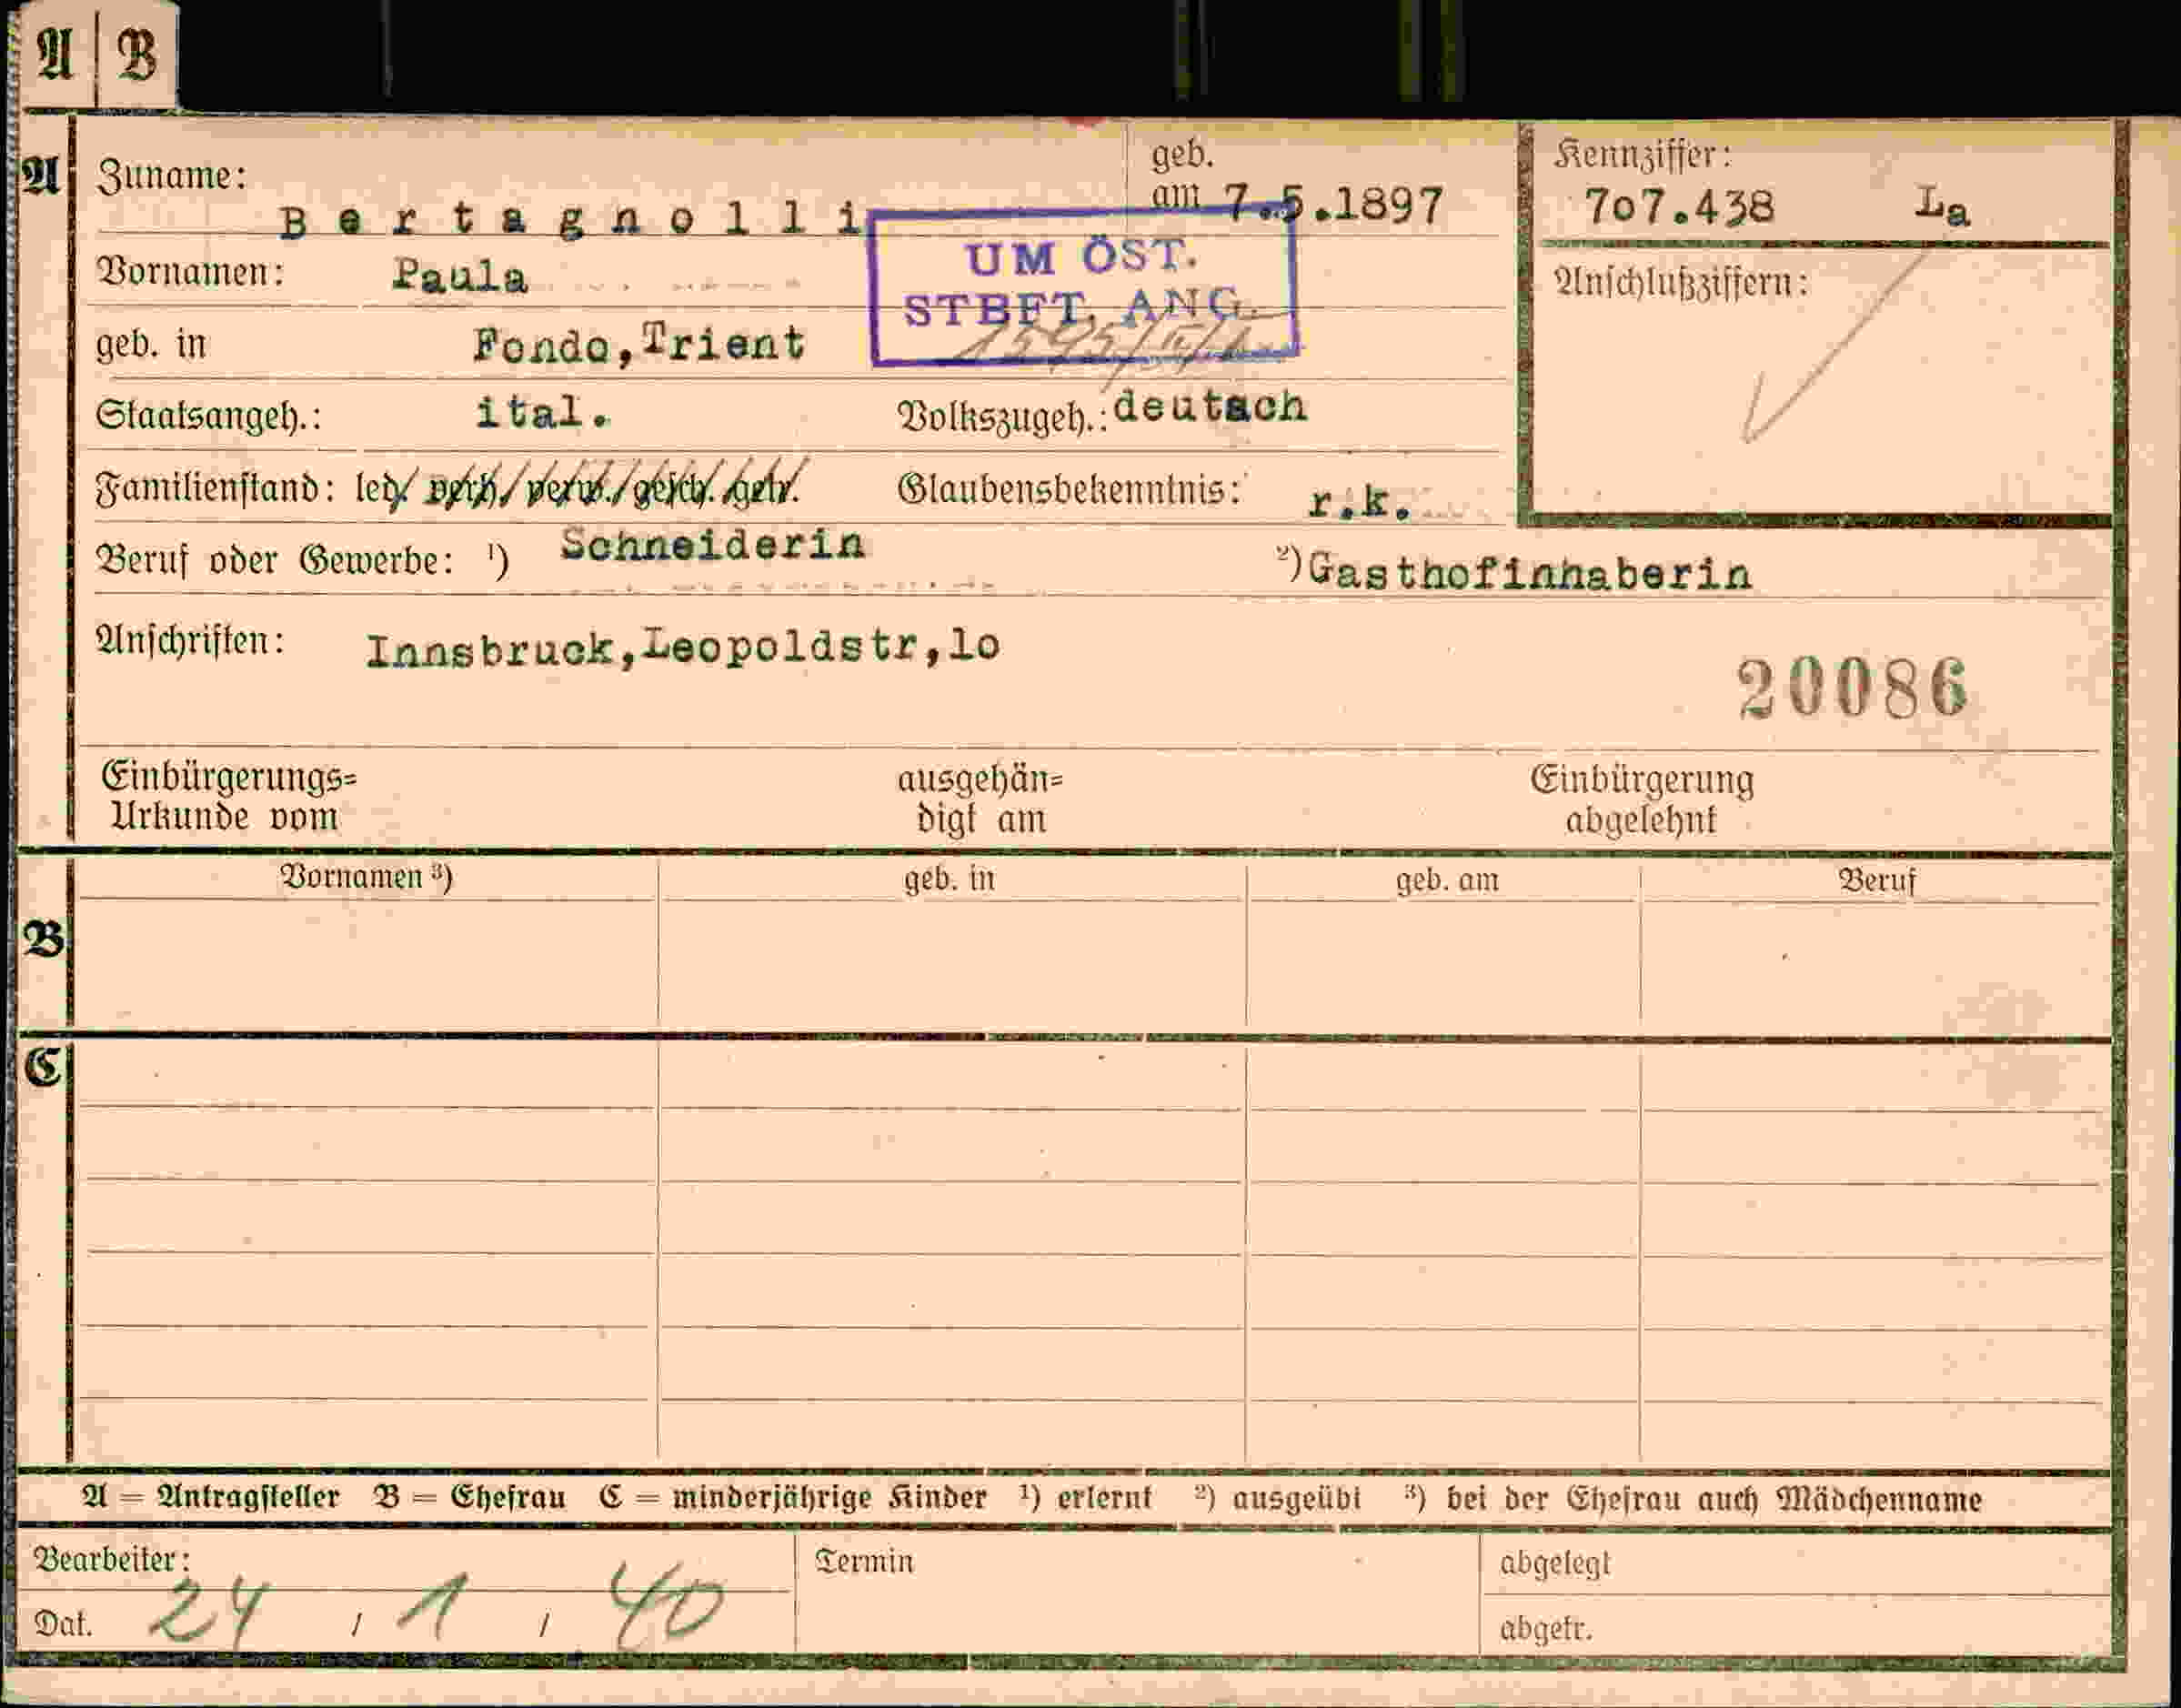 A | B
A Zuname: Bertagnolli geb. am 7.5.1897 Kennziffer: 707.438 La
UM ÖST.
STBFT. ANG.
Vornamen: Paula Anschlußziffern:
geb. in Fondo,Trient
Staatsangeh.: ital. Volkszugeh.: deutsch
Familienstand: led./ verh./ verw./ gesch./ getr. Glaubensbekenntnis: r.k.
Beruf oder Gewerbe: ¹) Schneiderin ²) Gasthofinhaberin
Anschriften: Innsbruck,Leopoldstr,lo
20086
Einbürgerungs= ausgehän= Einbürgerung
Urkunde vom digt am abgelehnt
Vornamen ³) geb. in geb. am Beruf
B
C
A = Antragsteller B = Ehefrau C = minderjährige Kinder ¹) erlernt ²) ausgeübt ³) bei der Ehefrau auch Mädchenname
Bearbeiter: Termin abgelegt
Dat. 24 / 1 / 40 abgetr.